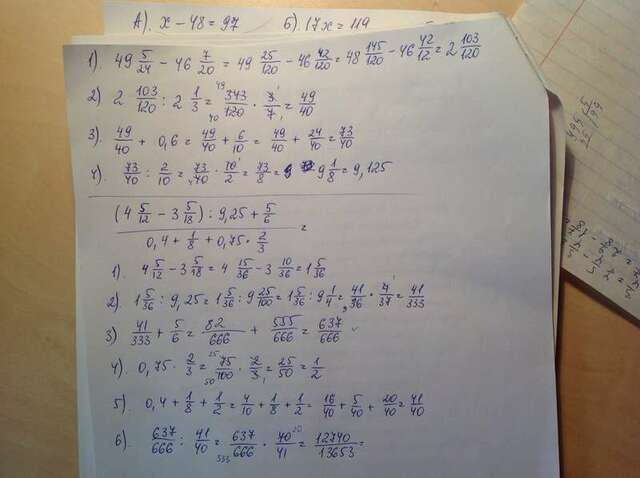 А). x - 48 = 97 Б). 17x = 119
1) 49 5/24 - 46 7/20 = 49 25/120 - 46 42/120 = 48 145/120 - 46 42/12 = 2 103/120
2) 2 103/120 : 2 1/3 = 343/120 · 3/7 = 49/40
3). 49/40 + 0,6 = 49/40 + 6/10 = 49/40 + 24/40 = 73/40
4). 73/40 : 2/10 = 73/40 · 10/2 = 73/8 = 9 1/8 = 9,125
(4 5/12 - 3 5/18) : 9,25 + 5/6
0,4 + 1/8 + 0,75 · 2/3 =
1). 4 5/12 - 3 5/18 = 4 15/36 - 3 10/36 = 1 5/36
2). 1 5/36 : 9,25 = 1 5/36 : 9 25/100 = 1 5/36 : 9 1/4 = 41/36 · 4/37 = 41/333
3) 41/333 + 5/6 = 82/666 + 555/666 = 637/666
4). 0,75 · 2/3 = 75/100 · 2/3 = 25/50 = 1/2
5). 0,4 + 1/8 + 1/2 = 4/10 + 1/8 + 1/2 = 16/40 + 5/40 + 20/40 = 41/40
6). 637/666 : 41/40 = 637/666 · 40/41 = 12740/13653 =